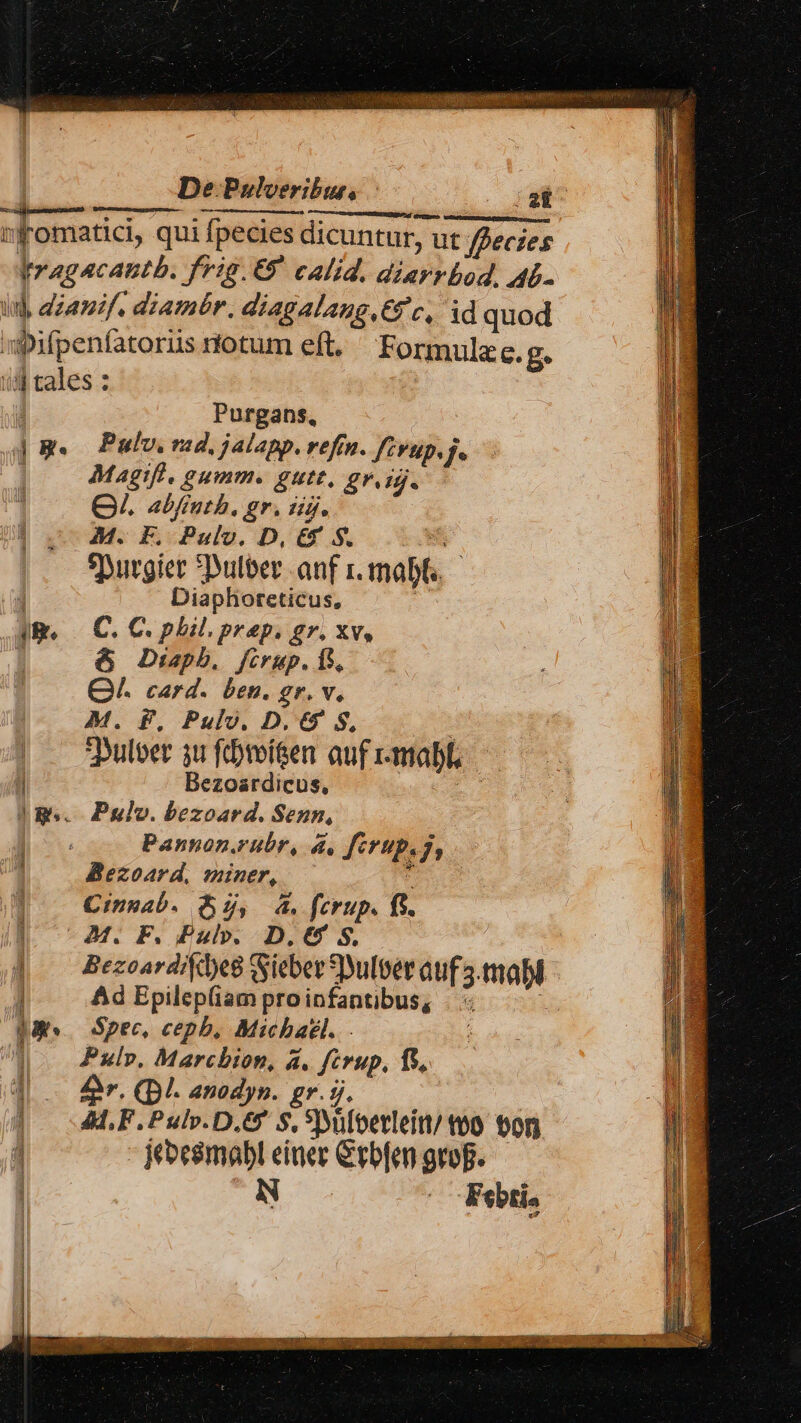 De Pulveribus. 21
romatici, qui ſpecies dicuntur, ut ſpecies
tragacanth. frig. & calid. diarrhod. Ab-
dianiſ. diambr. diagalang. &c. id quod
Diſpenſatoriis notum eſt. Formulæ e. g.
tales:
Purgans.
℞. Pulv. rad. jalapp. reſin. ſcrup. j.
Magiſt. gumm. gutt. gr. iij.
⊖l. abſinth. gr. iiij.
M. F. Pulv. D. & S.
Purgier Pulver auf 1. mahl.
Diaphoreticus.
℞. C. C. phil. præp. gr. xv.
♁ Diaph. ſcrup. ß.
⊖l. card. ben. gr. v.
M. F. Pulv. D. & S.
Pulver zu ſchwitzen auf 1. mahl.
Bezoardicus.
℞. Pulv. bezoard. Senn.
Pannon. rubr. ā. ſcrup. j.
Bezoard. miner.
Cinnab. ♁ij, ā. ſcrup. ß.
M. F. Pulv. D. & S.
Bezoardiſches Fieber Pulver auf 3. mahl
Ad Epilepſiam pro infantibus.
℞. Spec. ceph. Michaël.
Pulv. Marchion. ā. ſcrup. ß.
♁r. ⦶l. anodyn. gr. ij.
M. F. Pulv. D. & S. Pülverlein/ wo von
jedesmahl einer Erbſen groß.
N Febri-